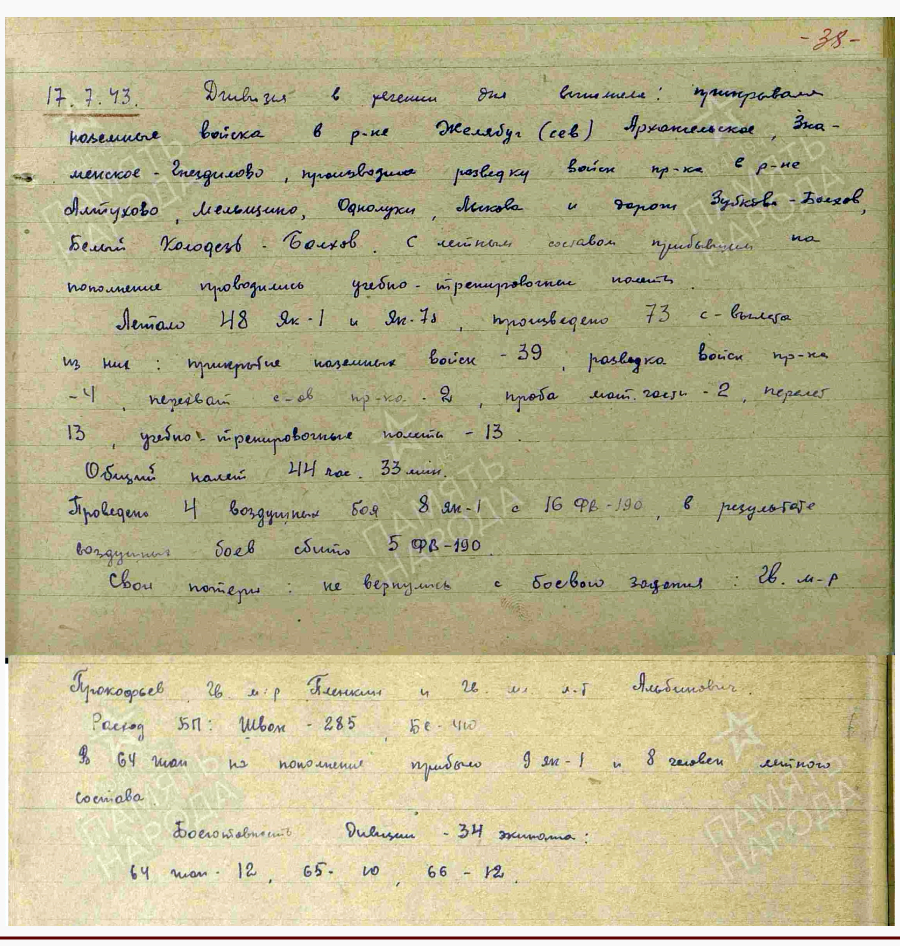 -38-
17.7.43. Дивизия в течении дня выполняла: прикрывала
наземные войска в р-не Желябуг (сев) Архангельское, Зна-
менское - Гнездилово, производила разведку войск пр-ка в р-не
Алтухово, Мельщино, Однолуки, Лыкова и дорог Зубково - Болхов,
Белый Колодезь - Болхов. С летным составом прибывшим на
пополнение проводились учебно-тренировочные полеты.
Летало 48 Як-1 и Як-7б, произведено 73 с-вылета
из них: прикрытие наземных войск - 39, разведка войск пр-ка
- 4, перехват с-ов пр-ка - 2, проба мат. части - 2, перелет
13, учебно-тренировочные полеты - 13.
Общий налет 44 час. 33 мин.
Проведено 4 воздушных боя 8 Як-1 с 16 ФВ-190, в результате
воздушных боев сбито 5 ФВ-190.
Свои потери: не вернулись с боевого задания: Гв. м-р
Прокофьев, Гв. м-р Пленкин и Гв. мл. л-т Альбинович.
Расход БП: Швак - 285, БС - 410
В 64 гиап на пополнение прибыло 9 Як-1 и 8 человек летного
состава.
Боеготовность дивизии - 34 экипажа:
64 гиап - 12, 65 - 10, 66 - 12.
ПАМЯТЬ
НАРОДА
ПАМЯТЬ
НАРОДА
ПАМЯТЬ
НАРОДА
ПАМЯТЬ
НАРОДА
ПАМЯТЬ
НАРОДА